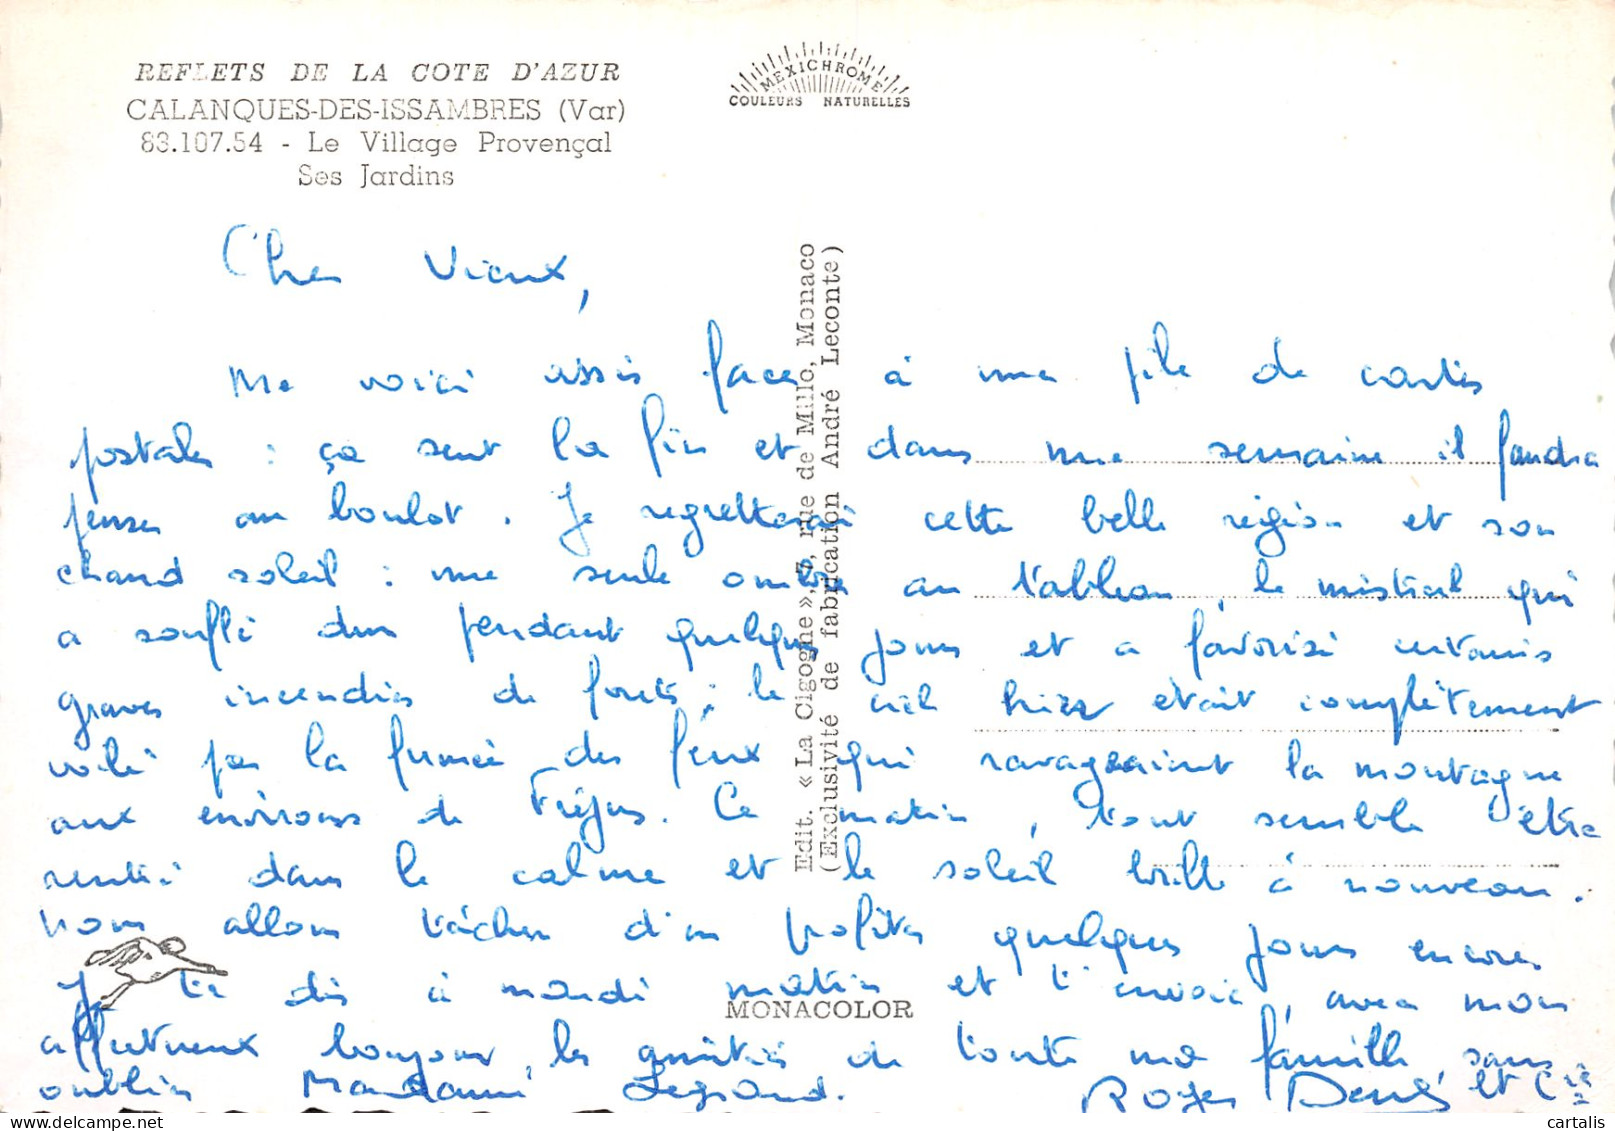 REFLETS DE LA COTE D'AZUR
CALANQUES-DES-ISSAMBRES (Var)
83.107.54 - Le Village Provençal
Ses Jardins
MEXICHROME
COULEURS NATURELLES
Edit. « La Cigogne », rue de Millo, Monaco
(Exclusivité de fabrication André Leconte)
Cher vieux,
Me voici assis face à une pile de cartes
postales : ça sent la fin et dans une semaine il faudra
penser au boulot. Je regretterai cette belle région et son
chaud soleil : une seule ombre au tableau, le mistral qui
a soufflé dur pendant quelques jours et a favorisé certains
graves incendies de forêts ; le ciel hier était complètement
voilé par la fumée des feux qui ravageaient la montagne
aux environs de Fréjus. Ce matin, tout semble être
rentré dans le calme et le soleil brille à nouveau.
Nous allons tâcher d'en profiter quelques jours encore
Je te dis à mardi matin et t'envoie, avec mon
affectueux bonjour, les amitiés de toute ma famille, sans
oublier Madame Legrand.
Roger Denis et Cie
MONACOLOR
cartalis